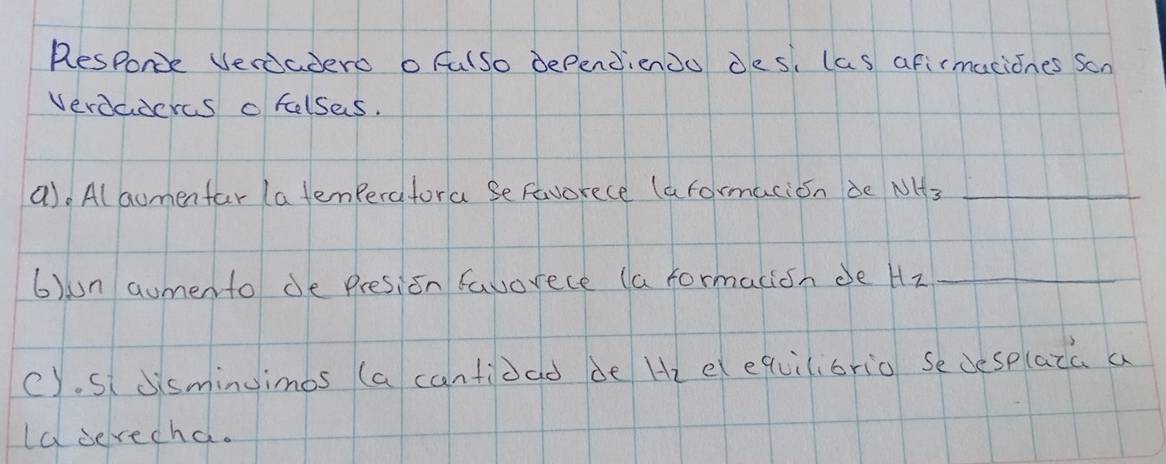 Responde verdadero o falso dependiendo de si las afirmaciónes son
verdaderas o falsas.
a). Al aumentar la temperatura se favorece la formación de NH3 ______
b) un aumento de presión favorece la formación de H2 ______
c). si disminuimos la cantidad de H2 el equilibrio se desplazá a
la derecha.